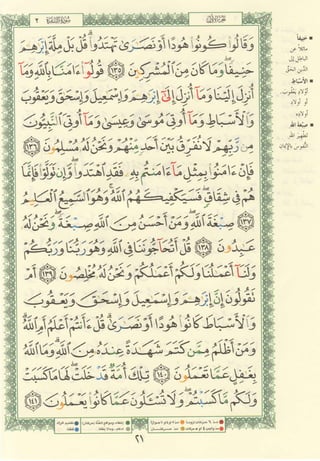 سورة البقرة ٢
وَقَالُوا۟ كُونُوا۟ هُودًا أَوْ نَصَٰرَىٰ تَهْتَدُوا۟ ۗ قُلْ بَلْ مِلَّةَ إِبْرَٰهِـۧمَ
حَنِيفًا ۖ وَمَا كَانَ مِنَ ٱلْمُشْرِكِينَ ١٣٥ قُولُوٓا۟ ءَامَنَّا بِٱللَّهِ وَمَآ
أُنزِلَ إِلَيْنَا وَمَآ أُنزِلَ إِلَىٰٓ إِبْرَٰهِـۧمَ وَإِسْمَٰعِيلَ وَإِسْحَٰقَ وَيَعْقُوبَ
وَٱلْأَسْبَاطِ وَمَآ أُوتِىَ مُوسَىٰ وَعِيسَىٰ وَمَآ أُوتِىَ ٱلنَّبِيُّونَ
مِن رَّبِّهِمْ لَا نُفَرِّقُ بَيْنَ أَحَدٍ مِّنْهُمْ وَنَحْنُ لَهُۥ مُسْلِمُونَ ١٣٦
فَإِنْ ءَامَنُوا۟ بِمِثْلِ مَآ ءَامَنتُم بِهِۦ فَقَدِ ٱهْتَدَوا۟ ۖ وَّإِن تَوَلَّوْا۟ فَإِنَّمَا
هُمْ فِى شِقَاقٍ ۖ فَسَيَكْفِيكَهُمُ ٱللَّهُ ۚ وَهُوَ ٱلسَّمِيعُ ٱلْعَلِيمُ
١٣٧ صِبْغَةَ ٱللَّهِ ۖ وَمَنْ أَحْسَنُ مِنَ ٱللَّهِ صِبْغَةً ۖ وَنَحْنُ لَهُۥ
عَٰبِدُونَ ١٣٨ قُلْ أَتُحَآجُّونَنَا فِى ٱللَّهِ وَهُوَ رَبُّنَا وَرَبُّكُمْ
وَلَنَآ أَعْمَٰلُنَا وَلَكُمْ أَعْمَٰلُكُمْ وَنَحْنُ لَهُۥ مُخْلِصُونَ ١٣٩ أَمْ
تَقُولُونَ إِنَّ إِبْرَٰهِـۧمَ وَإِسْمَٰعِيلَ وَإِسْحَٰقَ وَيَعْقُوبَ
وَٱلْأَسْبَاطَ كَانُوا۟ هُودًا أَوْ نَصَٰرَىٰ ۗ قُلْ ءَأَنتُمْ أَعْلَمُ أَمِ ٱللَّهُ ۗ
وَمَنْ أَظْلَمُ مِمَّن كَتَمَ شَهَٰدَةً عِندَهُۥ مِنَ ٱللَّهِ ۗ وَمَا ٱللَّهُ
بِغَٰفِلٍ عَمَّا تَعْمَلُونَ ١٤٠ تِلْكَ أُمَّةٌ قَدْ خَلَتْ ۖ لَهَا مَا كَسَبَتْ
وَلَكُم مَّا كَسَبْتُمْ ۖ وَلَا تُسْـَٔلُونَ عَمَّا كَانُوا۟ يَعْمَلُونَ ١٤١
٢١
حنيفاً
مائلاً عن
الباطل إلى
الدين الحق
الأسباط
أولاد يعقوب
أو أولاد
أولاده
صبغة الله